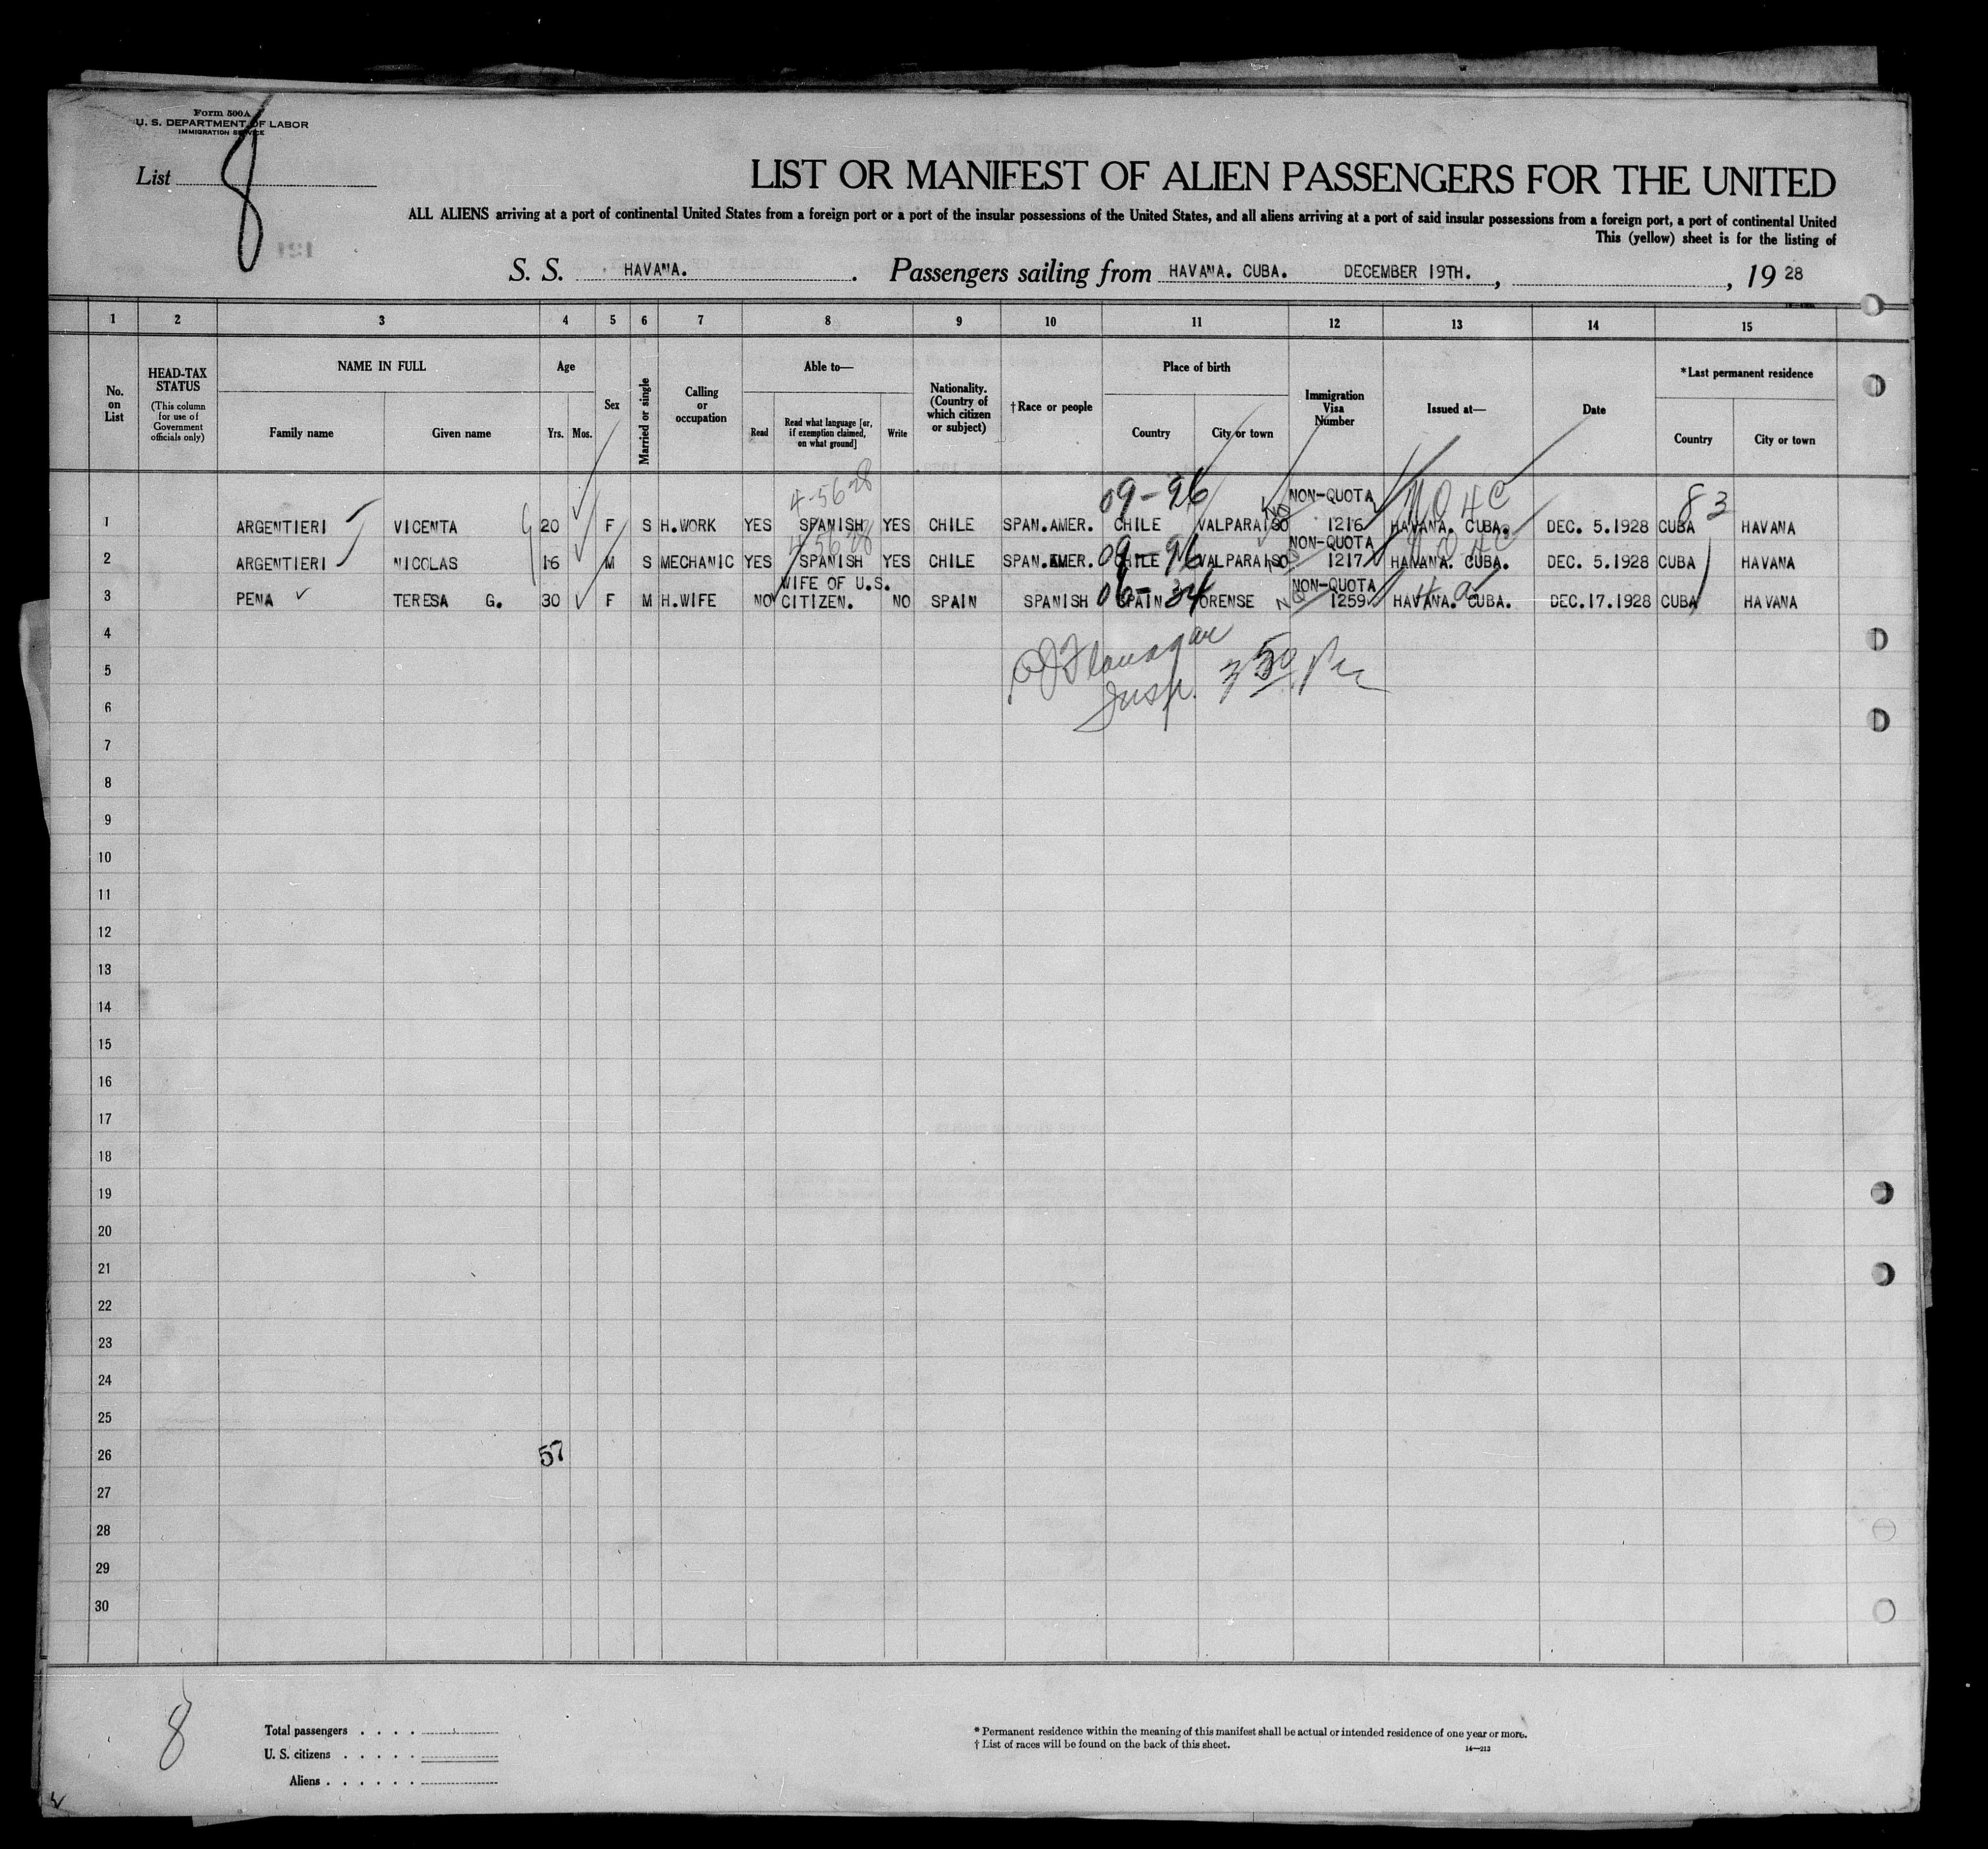 Form 500A
U. S. DEPARTMENT OF LABOR
IMMIGRATION SERVICE
List 8
LIST OR MANIFEST OF ALIEN PASSENGERS FOR THE UNITED
ALL ALIENS arriving at a port of continental United States from a foreign port or a port of the insular possessions of the United States, and all aliens arriving at a port of said insular possessions from a foreign port, a port of continental United
This (yellow) sheet is for the listing of
S. S. HAVANA. Passengers sailing from HAVANA. CUBA. DECEMBER 19TH. , , 19 28
1 2 3 4 5 6 7 8 9 10 11 12 13 14 15
No. on List
HEAD-TAX STATUS (This column for use of Government officials only)
NAME IN FULL
Family name Given name
Age
Yrs. Mos.
Sex
Married or single
Calling or occupation
Able to—
Read Read what language [or, if exemption claimed, on what ground] Write
Nationality. (Country of which citizen or subject)
† Race or people
Place of birth
Country City or town
Immigration Visa Number
Issued at—
Date
*Last permanent residence
Country City or town
4-56 28 09-96 NON-QUOTA 83
1 ARGENTIERI VICENTA 20 F S H.WORK YES SPANISH YES CHILE SPAN.AMER. CHILE VALPARAISO 1216 HAVANA. CUBA. DEC. 5.1928 CUBA HAVANA
4-56 28 09-96 NON-QUOTA
2 ARGENTIERI NICOLAS 16 M S MECHANIC YES SPANISH YES CHILE SPAN.AMER. CHILE VALPARAISO 1217 HAVANA. CUBA. DEC. 5.1928 CUBA HAVANA
WIFE OF U.S. 06-34 NON-QUOTA
3 PENA TERESA G. 30 F M H.WIFE NO CITIZEN. NO SPAIN SPANISH SPAIN ORENSE 1259 HAVANA. CUBA. DEC.17.1928 CUBA HAVANA
4
Flanagan
5
Insp. 3 50
6
7
8
9
10
11
12
13
14
15
16
17
18
19
20
21
22
23
24
25
26 57
27
28
29
30
8
Total passengers . . . .
U. S. citizens . . . . .
Aliens . . . . . .
* Permanent residence within the meaning of this manifest shall be actual or intended residence of one year or more.
† List of races will be found on the back of this sheet.
14—213